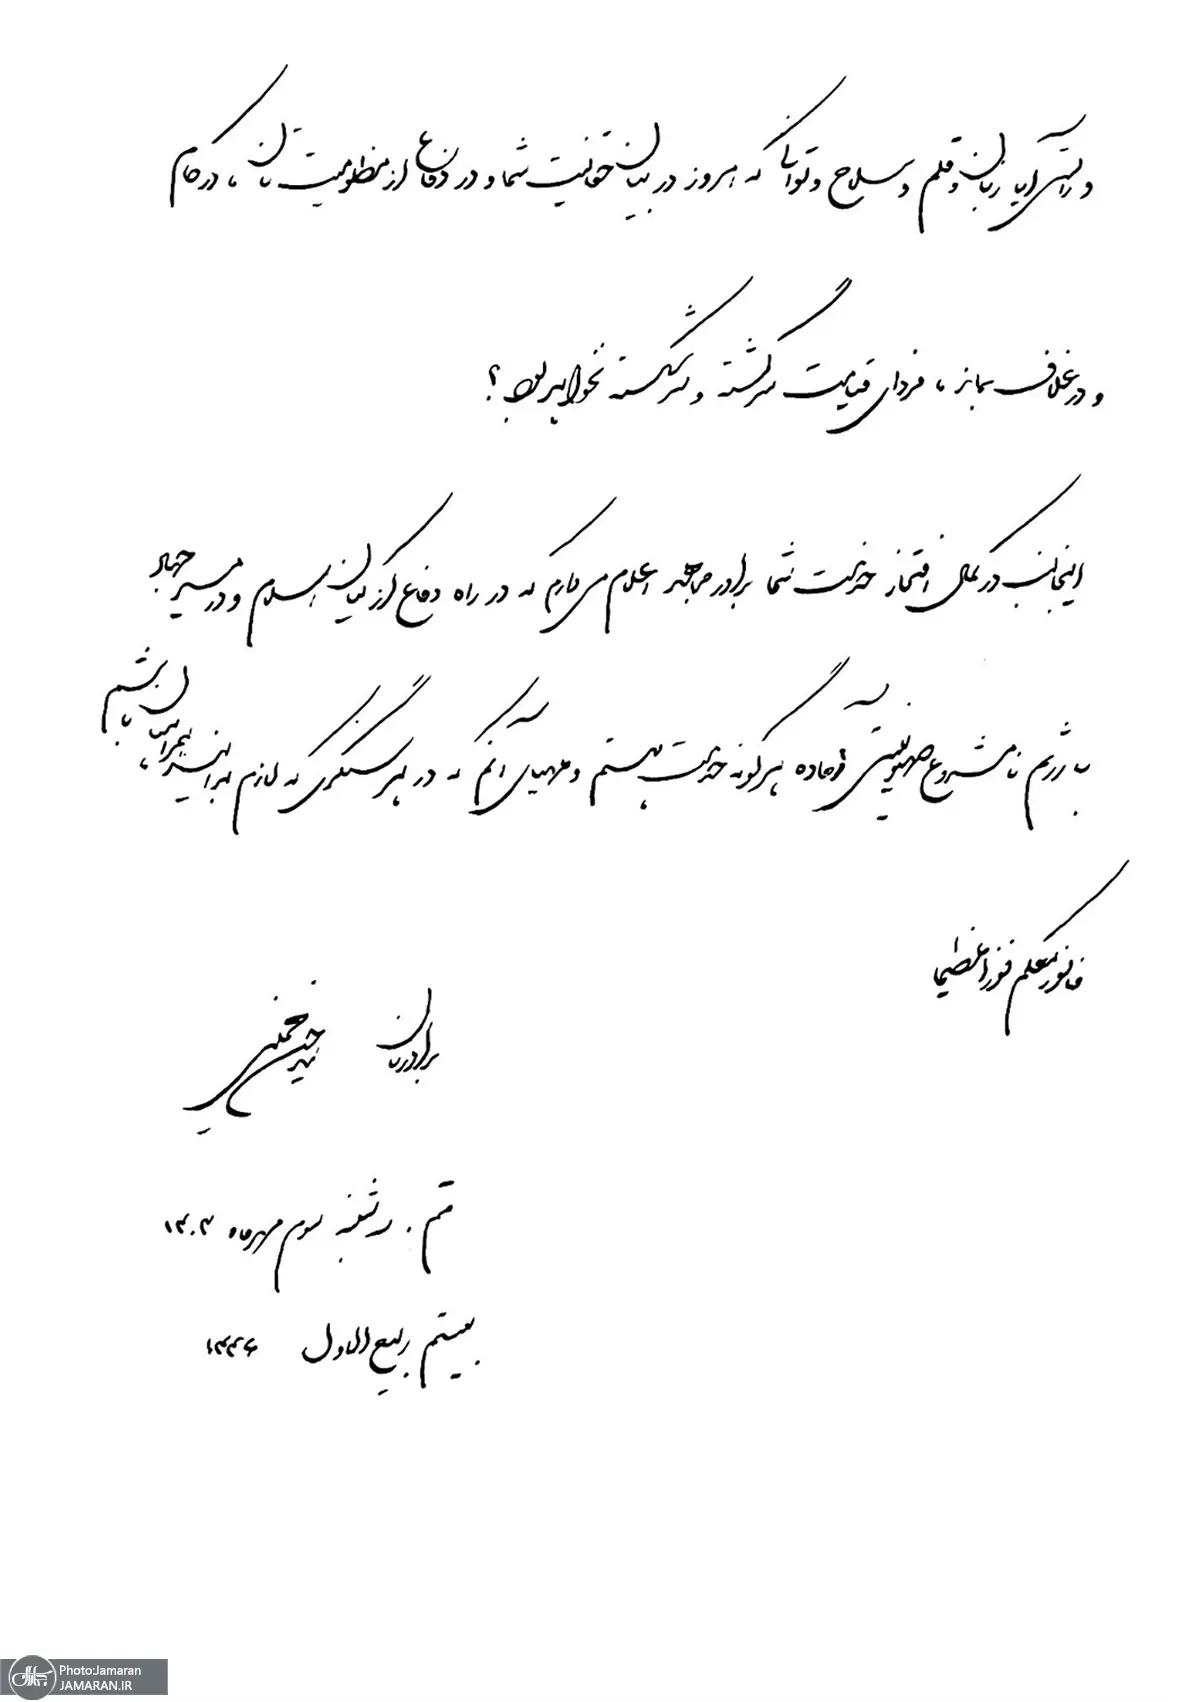 و راستی آیا زبان و قلم و سلاح و توانی که امروز در بیان حقانیت شما و در دفاع از مظلومیت تان، در کام
و در غلاف بماند، فردای قیامت سرگشته و سرشکسته نخواهد بود؟
اینجانب در کمال افتخار خدمت شما برادر مجاهد اعلام می دارم که در راه دفاع از کیان اسلام و در مسیر جهاد
با رژیم نامشروع صهیونیستی آماده هرگونه خدمت هستم و مهیای آنم که در هر سنگری که لازم بدانید، همراهتان باشم
فافوز معکم فوزا عظیما
برادرتان سید حسن خمینی
قم. سه شنبه سوم مهرماه ۱۴۰۳
بیستم ربیع الاول ۱۴۴۶
Photo:Jamaran
JAMARAN.IR